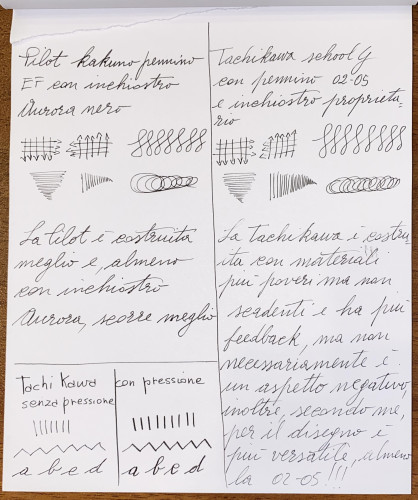 Pilot kakuno pennino
EF con inchiostro
Aurora nero
La Pilot è costruita
meglio e, almeno
con inchiostro
Aurora, scorre meglio
Tachikawa school G
con pennino 02-05
e inchiostro proprieta=
rio
La Tachikawa è costru=
ita con materiali
più poveri ma non
scadenti e ha più
feedback, ma non
necessariamente è
un aspetto negativo,
inoltre, secondo me,
per il disegno è
più versatile, almeno
la 02-05!!!
Tachikawa
senza pressione
a b c d
con pressione
a b c d